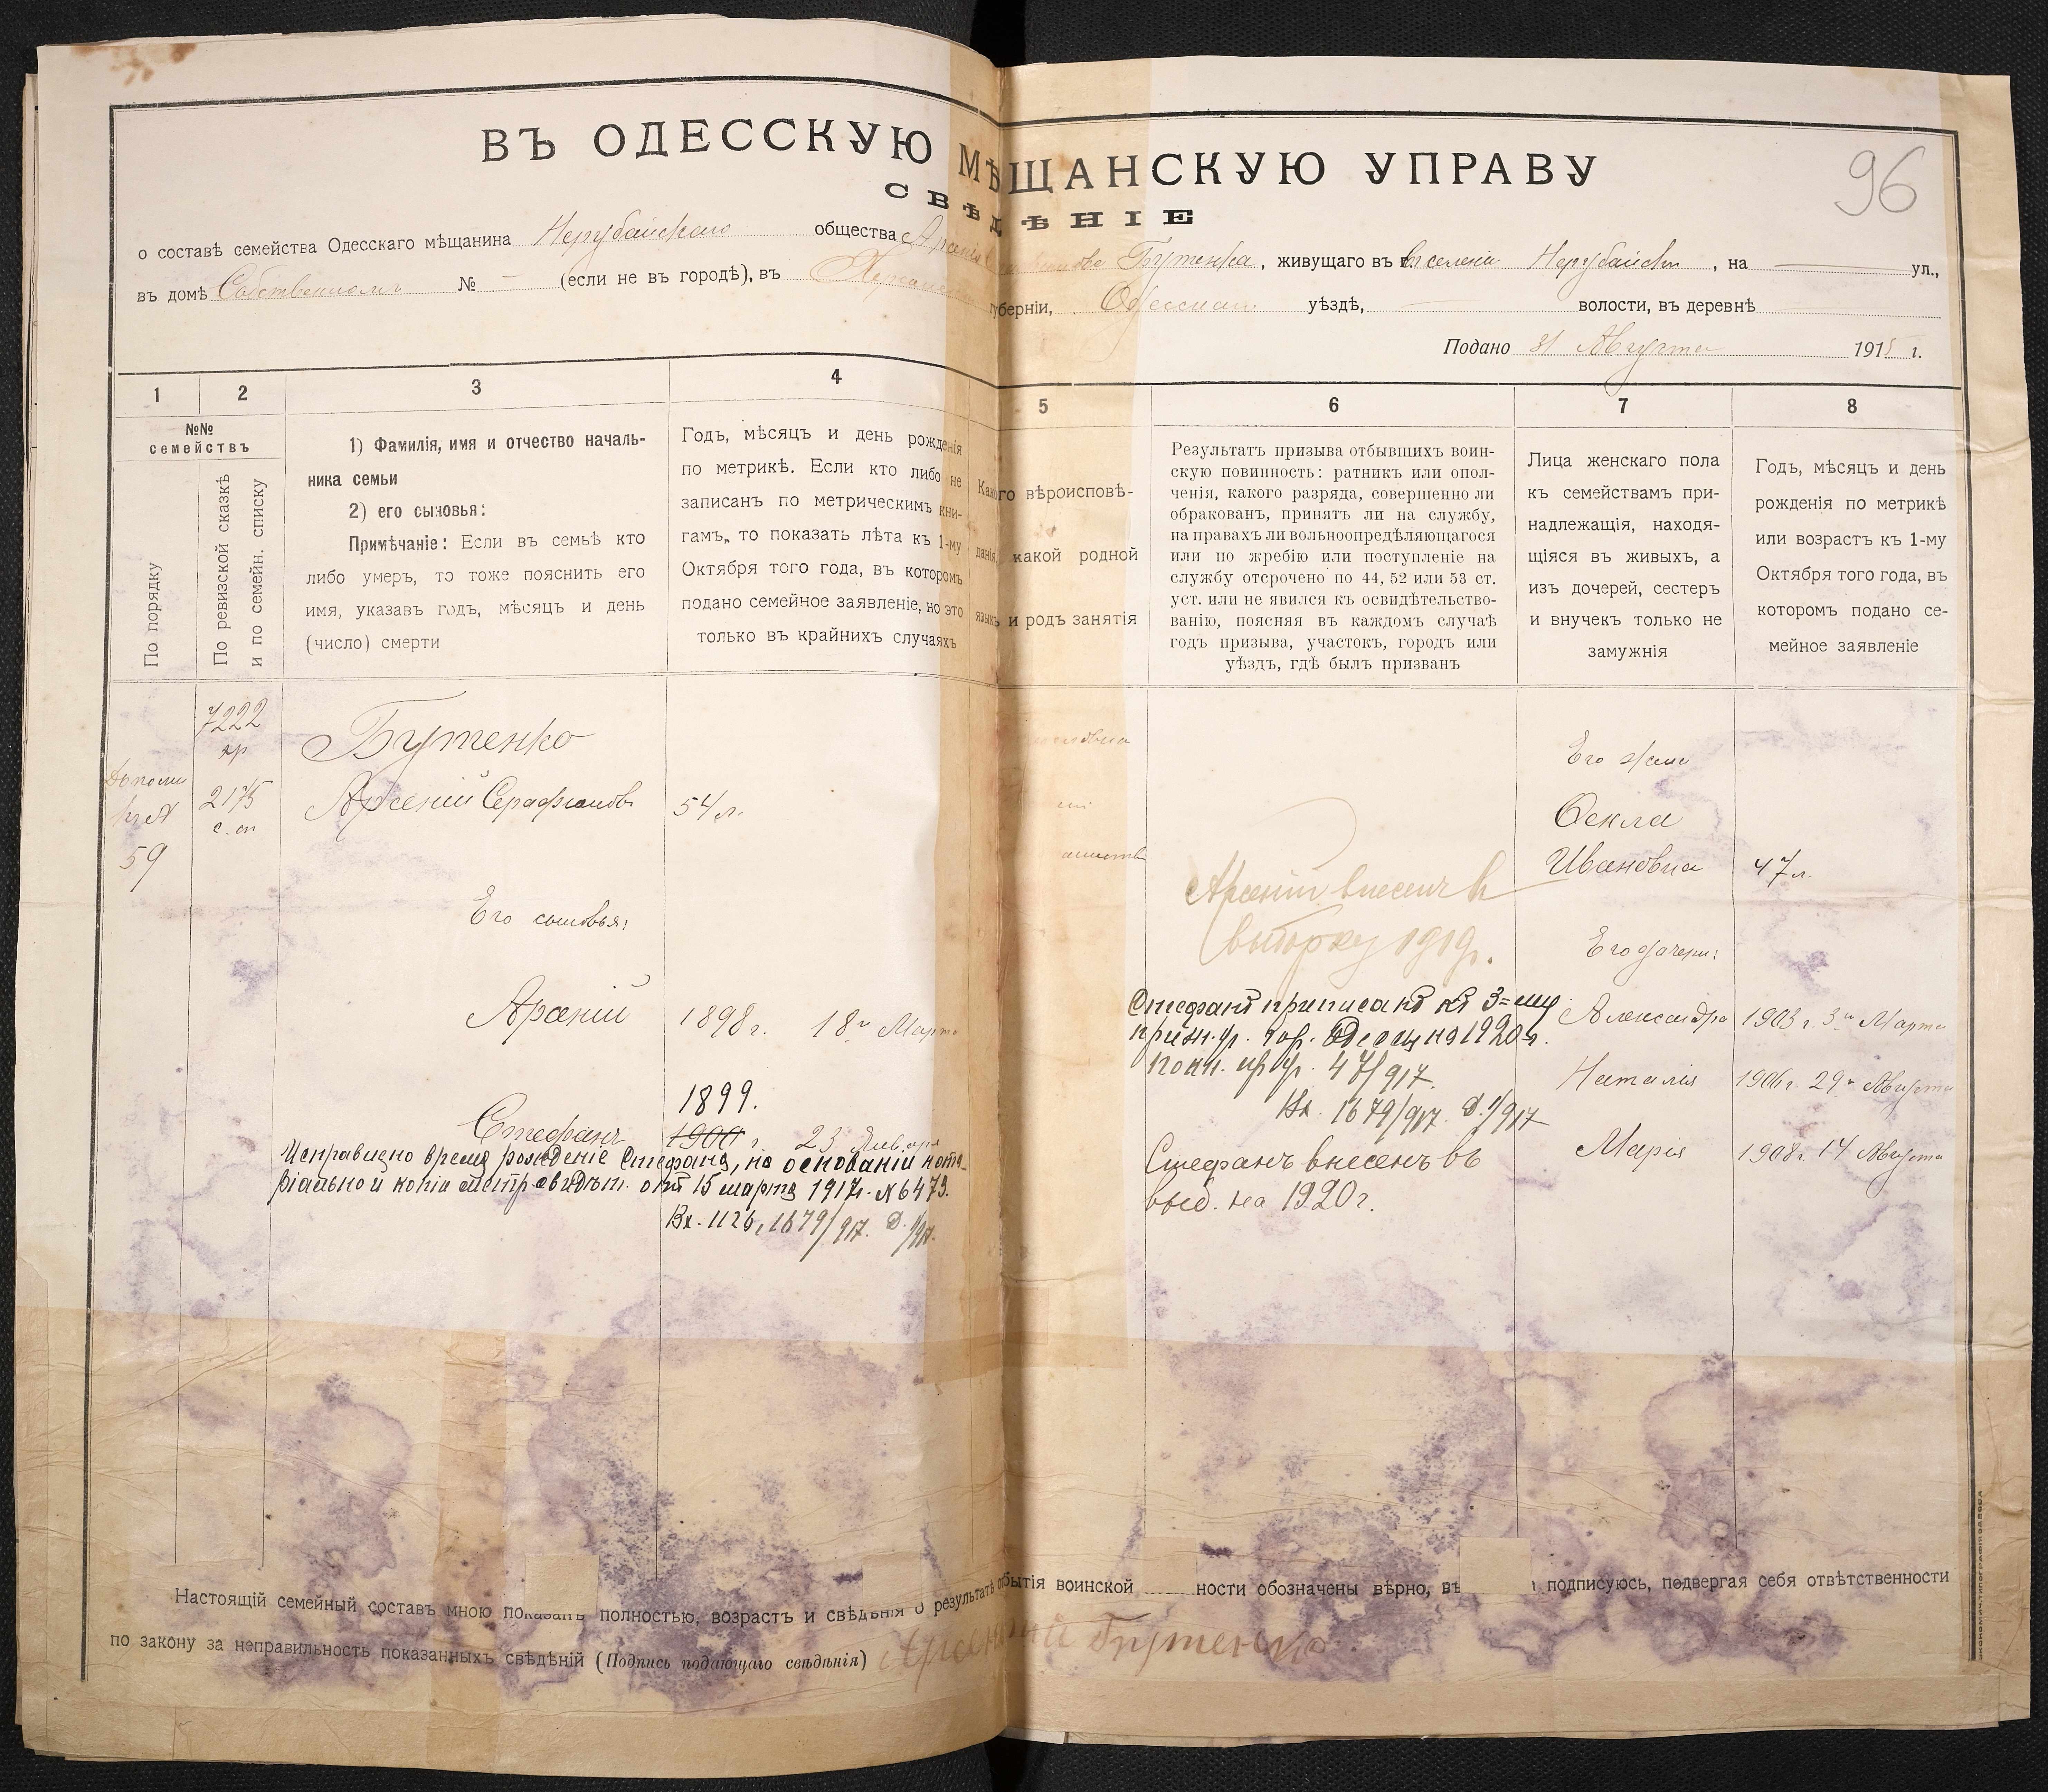 96
ВЪ ОДЕССКУЮ МѢЩАНСКУЮ УПРАВУ
СВѢДѢНІЕ
о составѣ семейства Одесскаго мѣщанина Нерубайскаго общества Арсенія Бутенка, живущаго въ селеніи Нерубайском, на ул.,
въ домѣ Собственномъ № — (если не въ городѣ), въ Херсонской губерніи, Одесскаго уѣздѣ, волости, въ деревнѣ
Подано 31 Августа 1915 г.
1 2 3 4 5 6 7 8
№№
семействъ
По порядку
По ревизской сказкѣ
и по семейн. списку
1) Фамилія, имя и отчество началь-
ника семьи
2) его сыновья:
Примѣчаніе: Если въ семьѣ кто
либо умеръ, то тоже пояснить его
имя, указавъ годъ, мѣсяцъ и день
(число) смерти
Годъ, мѣсяцъ и день рожденія
по метрикѣ. Если кто либо не
записанъ по метрическимъ кни-
гамъ, то показать лѣта къ 1-му
Октября того года, въ которомъ
подано семейное заявленіе, но это
только въ крайнихъ случаяхъ
Какого вѣроисповѣ-
данія, какой родной
языкъ и родъ занятія
Результатъ призыва отбывшихъ воин-
скую повинность: ратникъ или опол-
ченія, какого разряда, совершенно ли
обракованъ, принятъ ли на службу,
на правахъ ли вольноопредѣляющагося
или по жребію или поступленіе на
службу отсрочено по 44, 52 или 53 ст.
уст. или не явился къ освидѣтельство-
ванію, поясняя въ каждомъ случаѣ
годъ призыва, участокъ, городъ или
уѣздъ, гдѣ былъ призванъ
Лица женскаго пола
къ семействамъ при-
надлежащія, находя-
щіяся въ живыхъ, а
изъ дочерей, сестеръ
и внучекъ только не
замужнія
Годъ, мѣсяцъ и день
рожденія по метрикѣ
или возрастъ къ 1-му
Октября того года, въ
которомъ подано се-
мейное заявленіе
7222
Бутенко
2175
с. сп
59
Арсеній Серафимовъ 54 л.
Его сыновья:
Арсеній 1898 г. 18го Марта
1899.
Стефанъ 1900 г. 23 Января
Исправлено время рожденіе Стефана, на основаніи нота-
ріальной копіи метр свидѣт. отъ 15 марта 1917 г. № 6473.
Вх. 1126, 1679/917. Д. 1/917.
Арсеній внесенъ в
выборку 1919 г.
Стефанъ приписанъ къ 3=му
приз. уч. гор. Одессы на 1920 г.
47/917.
Вх. 1679/917. Д. 1/917
Стефанъ внесенъ въ
выб. на 1920 г.
Его жена
Фекла
Ивановна 47 л.
Его дочери:
Александра 1903 г. 3го Марта
Наталія 1906 г. 29го Августа
Марія 1908 г. 14 Августа
Настоящій семейный составъ мною показанъ полностью, возрастъ и свѣдѣнія о результатѣ отбытія воинской ности обозначены вѣрно, въ подписуюсь, подвергая себя отвѣтственности
по закону за неправильность показанныхъ свѣдѣній (Подпись подающаго свѣдѣнія) Арсеній Бутенко